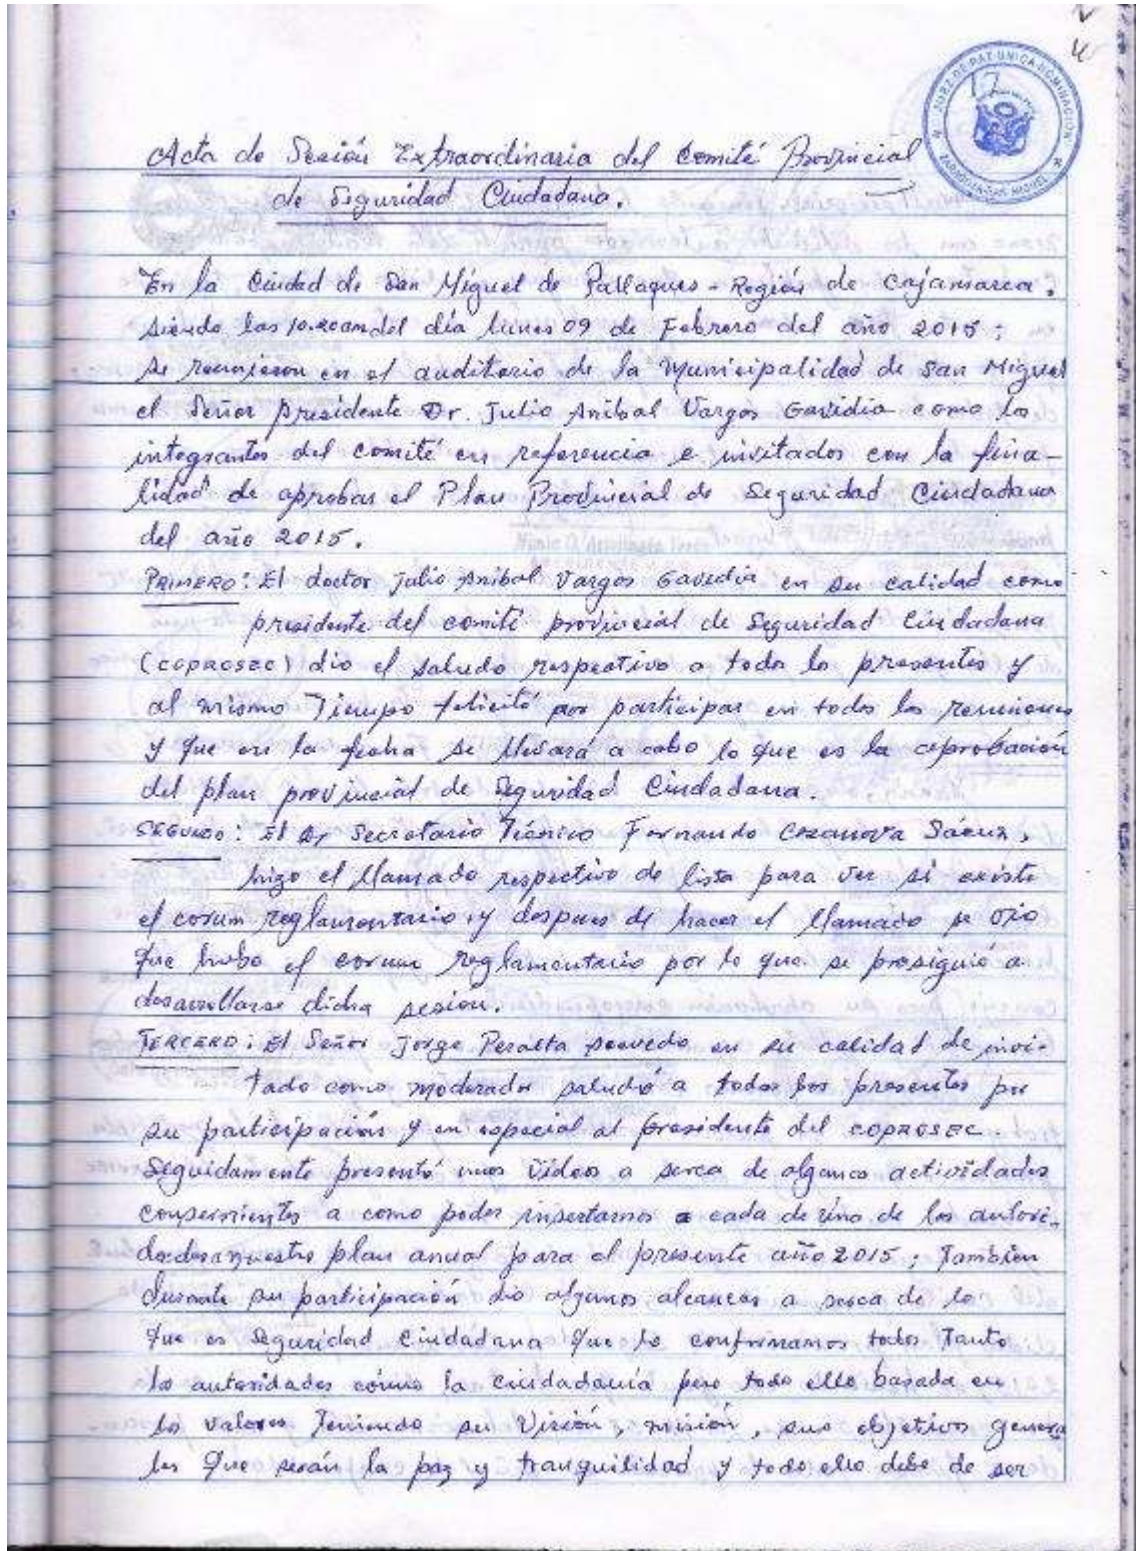 JUEZ DE PAZ UNICA NOMINACION
17
SAN MIGUEL
Acta de Sesión Extraordinaria del Comité Provincial
de Seguridad Ciudadana.
En la Ciudad de San Miguel de Pallaques - Región de Cajamarca.
siendo las 10.20am del día lunes 09 de Febrero del año 2015;
se reunieron en el auditorio de la Municipalidad de San Miguel
el Señor presidente Dr. Julio Anibal Vargas Gavidia como los
integrantes del comité en referencia e invitados con la fina-
lidad de aprobar el Plan Provincial de Seguridad Ciudadana
del año 2015.
PRIMERO: El doctor Julio Anibal Vargas Gavidia en su calidad como
presidente del comité provincial de Seguridad Ciudadana
(COPROSEC) dio el saludo respectivo a todo lo presentes y
al mismo Tiempo felicitó por participar en todos las reuniones
y que en la fecha se llevará a cabo lo que es la aprobación
del plan provincial de Seguridad Ciudadana.
SEGUNDO: El Sr Secretario Técnico Fernando Casanova Sáenz,
hizo el llamado respectivo de lista para ver si existe
el corum reglamentario, y despues de hacer el llamado se vio
que hubo el corum reglamentario por lo que se prosiguió a
desarrollarse dicha sesión.
TERCERO: El Señor Jorge Peralta Acevedo en su calidad de invi-
tado como moderador saludó a todos los presentes por
su participación y en especial al presidente del COPROSEC.
Seguidamente presentó unos videos a serca de algunas actividades
consernientes a como poder insertarnos a cada de uno de los autori-
dades nuestro plan anual para el presente año 2015; Tambien
durante su participación dio algunos alcances a serca de lo
que es Seguridad Ciudadana que lo conformamos todos Tanto
las autoridades como la ciudadanía pero todo ello basada en
los valores Teniendo su Visión, misión, sus objetivos genera
les que serán la paz y tranquilidad y todo ello debe de ser